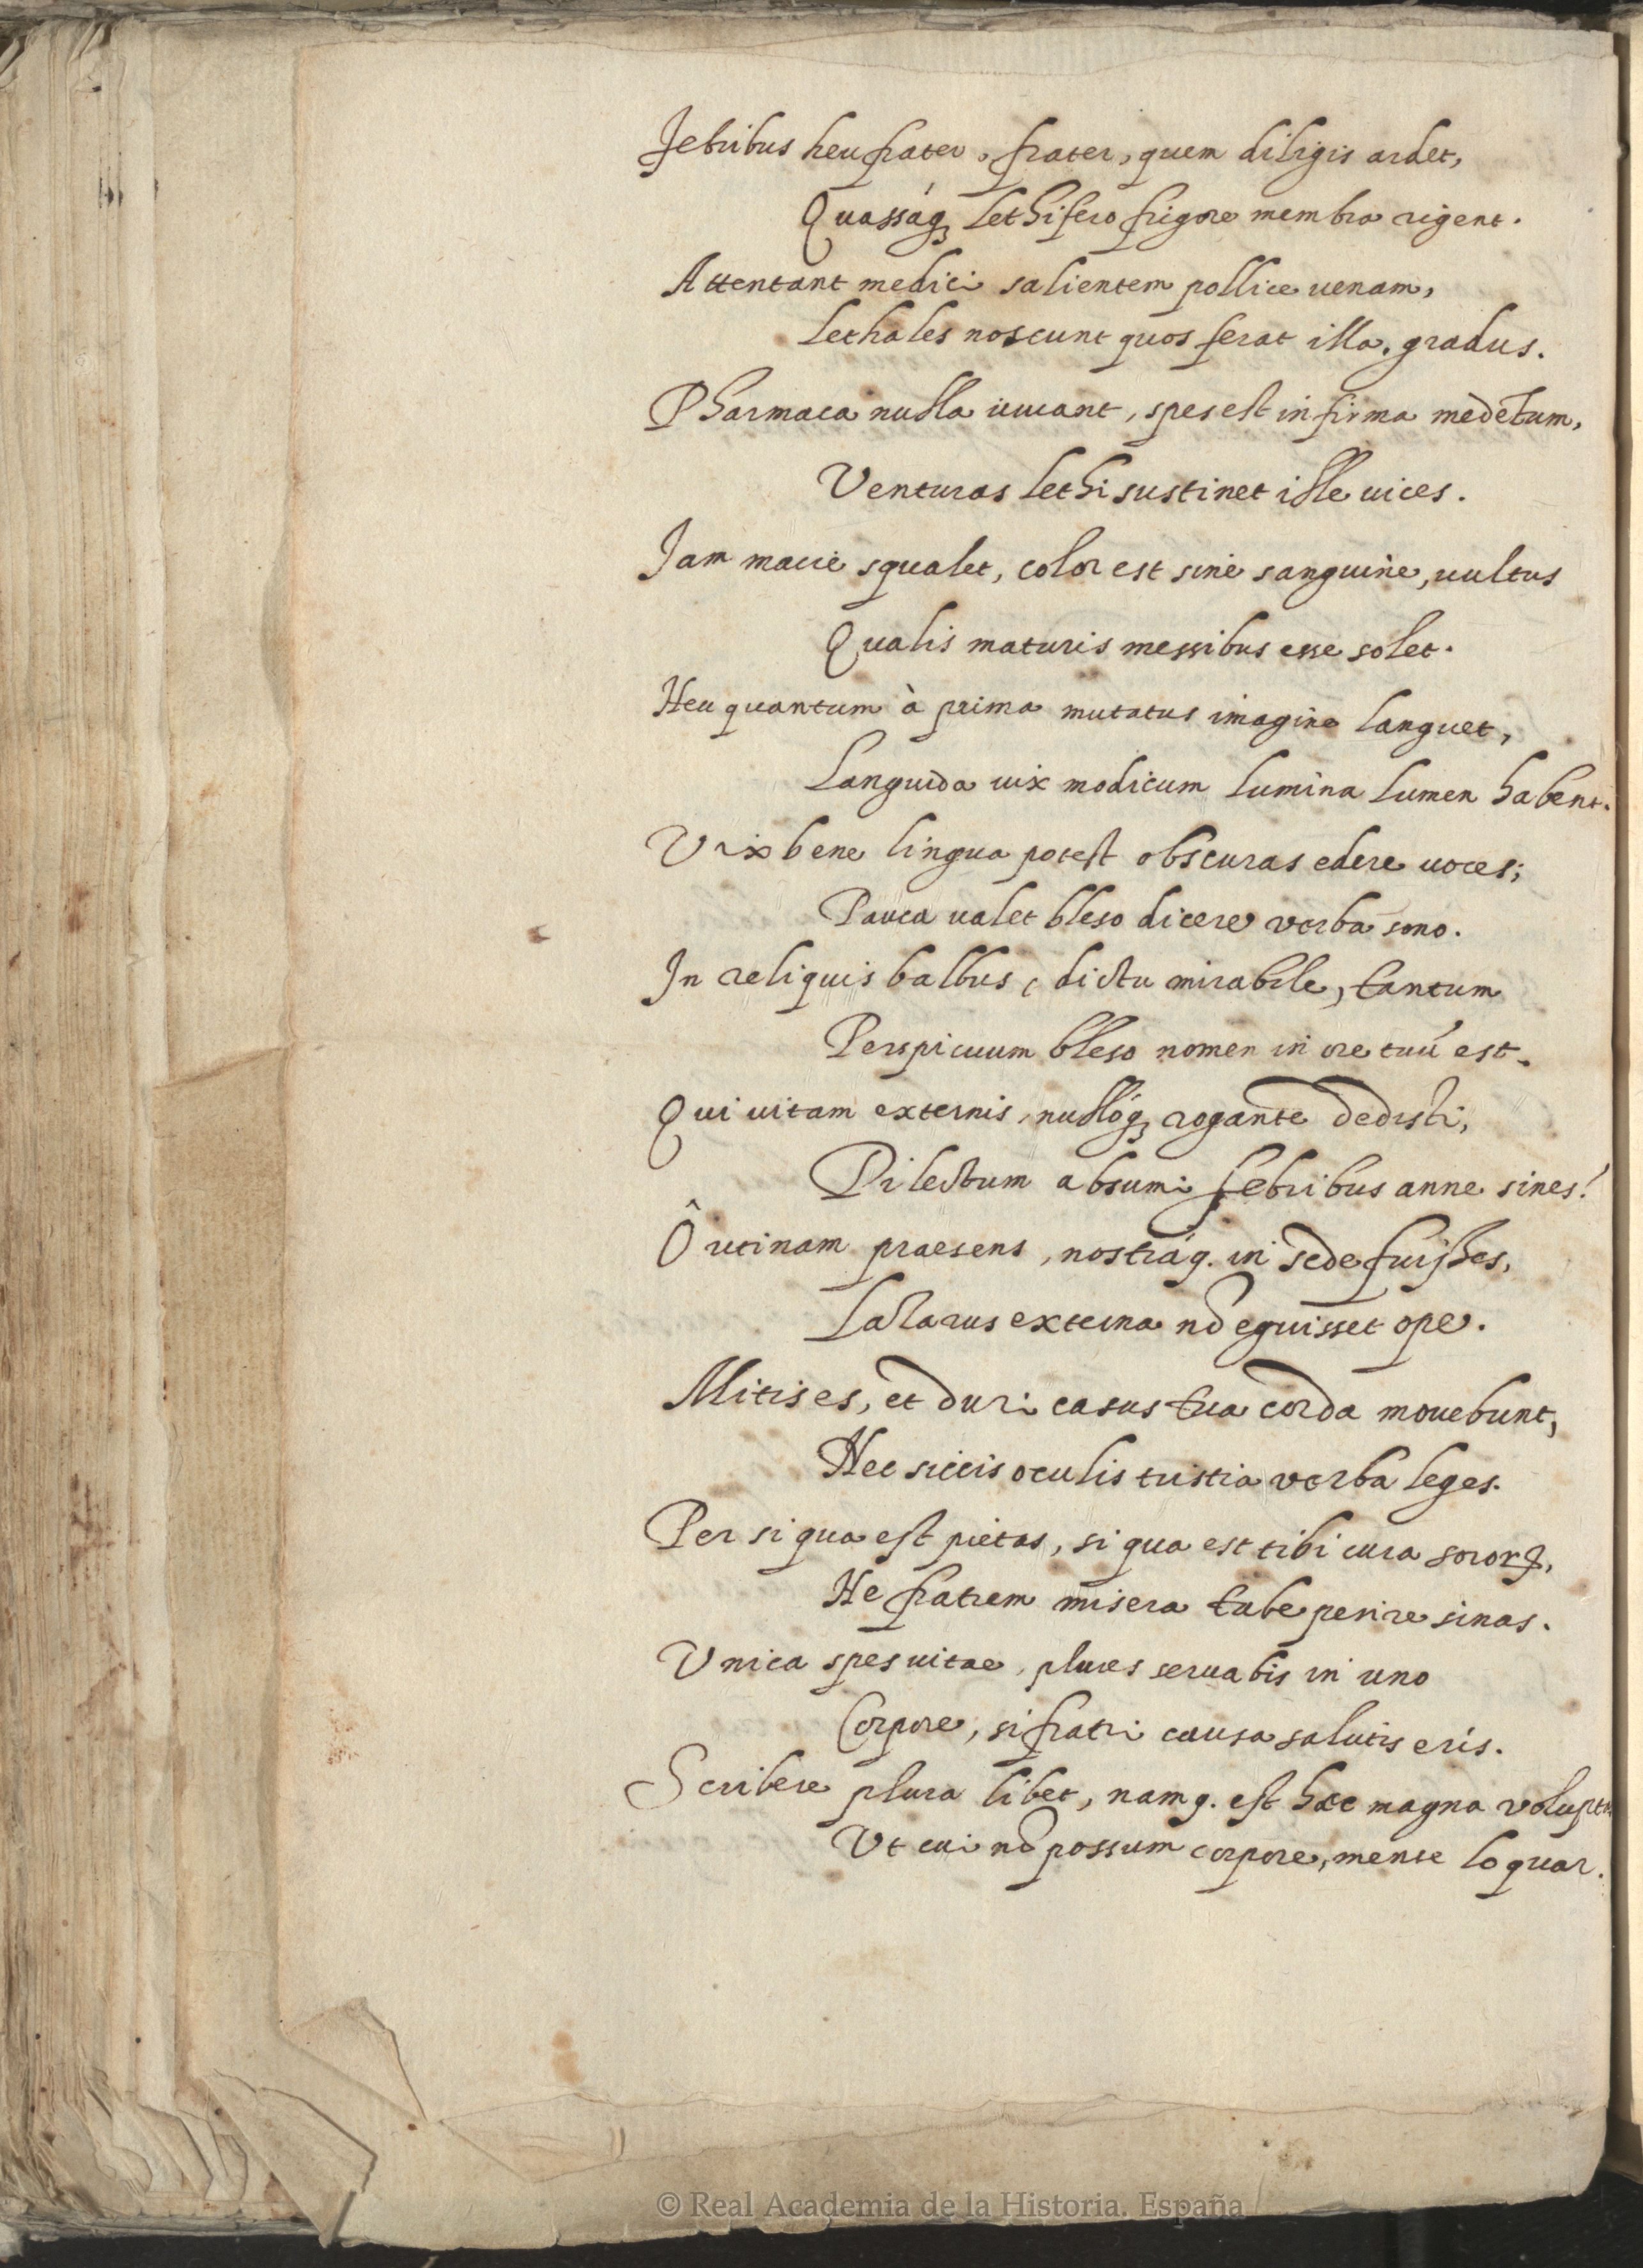 Febribus heu frater, frater, quem diligis ardet,
Quassáq; lethifero frigore membra rigent.
Attentant medici salientem pollice uenam,
Lethales noscunt quos ferat illa, gradus.
Pharmaca nulla iuuant, spes est infirma medētum,
Venturas lethi sustinet ille uices.
Jam macie squalet, color est sine sanguine, uultus
Qualis maturis messibus esse solet.
Heu quantum à prima mutatus imagine languet,
Languida uix modicum lumina lumen habent.
Vix bene lingua potest obscuras edere uoces;
Pauca ualet bleso dicere verba sono.
In reliquis balbus, dictu mirabile, tantum
Perspicuum bleso nomen in ore tuū est.
Qui uitam externis, nullóq; rogante dedisti,
Dilectum absumi febribus anne sines!
Ô utinam praesens, nostráq. in sede fuisses,
Lactarus externa nō eguisset ope.
Mitis es, et duri casus tua corda mouebunt,
Nec siccis oculis tristia verba leges.
Per si qua est pietas, si qua est tibi cura soror,
Ne fratrem misera tabe perire sinas.
Vnica spes uitae, plures seruabis in uno
Corpore, si fratri causa salutis eris.
Scribere plura libet, namq. est haec magna volupt
Vt cui nō possum corpore, mente loquar.
© Real Academia de la Historia. España